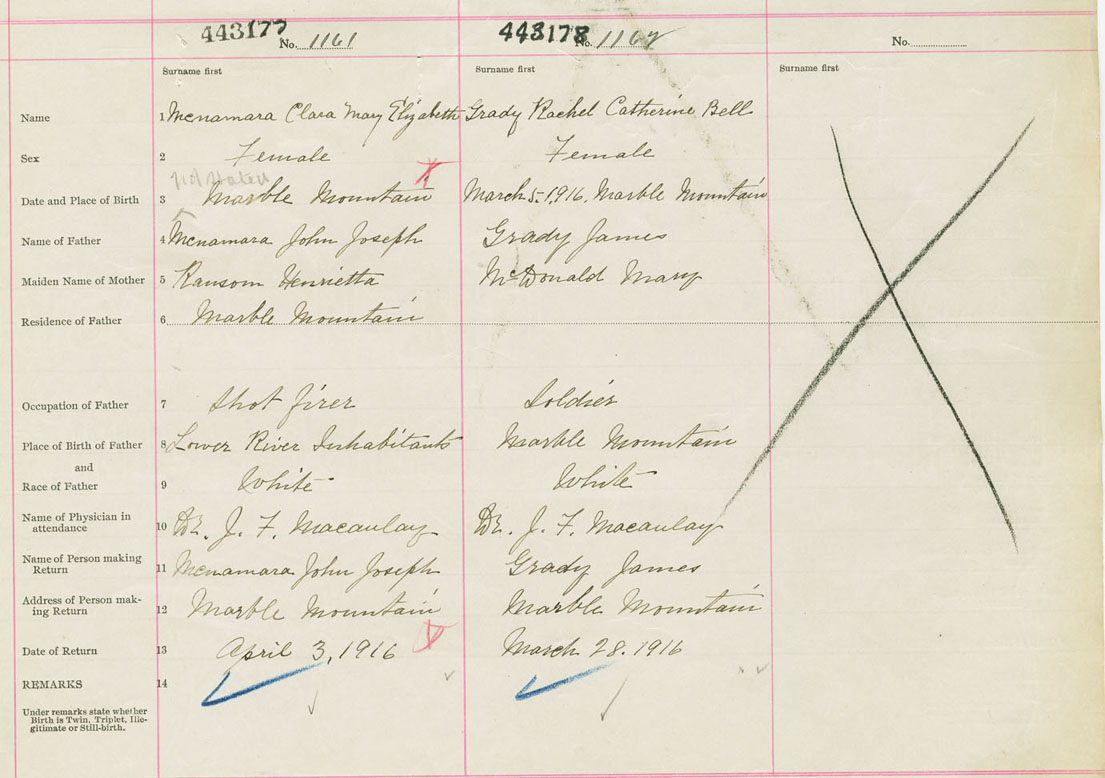 443177 No. 1161 443178 No. 1162 No.
Surname first Surname first Surname first
Name 1 Mcnamara Clara Mary Elizabeth Grady Rachel Catherine Bell
Sex 2 Female Female
not stated
Date and Place of Birth 3 Marble Mountain March 5. 1916. Marble Mountain
Name of Father 4 Mcnamara John Joseph Grady James
Maiden Name of Mother 5 Ransom Henrietta McDonald Mary
Residence of Father 6 Marble Mountain
Occupation of Father 7 Shot firer Soldier
Place of Birth of Father 8 Lower River Inhabitants Marble Mountain
and
Race of Father 9 White White
Name of Physician in
attendance 10 Dr. J. F. Macaulay Dr. J. F. Macaulay
Name of Person making
Return 11 Mcnamara John Joseph Grady James
Address of Person mak-
ing Return 12 Marble Mountain Marble Mountain
Date of Return 13 April 3, 1916 March 28. 1916
REMARKS 14
Under remarks state whether
Birth is Twin, Triplet, Ille-
gitimate or Still-birth.